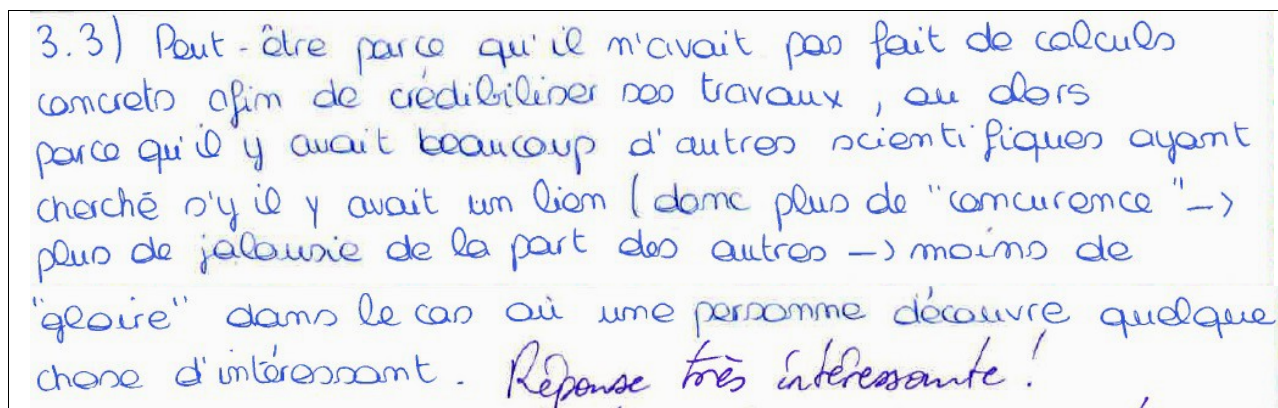 3.3) Peut-être parce qu'il n'avait pas fait de calculs
concrets afin de crédibiliser ses travaux, ou alors
parce qu'il y avait beaucoup d'autres scientifiques ayant
cherché s'y il y avait un lien (donc plus de "concurence" ->
plus de jalousie de la part des autres -> moins de
"gloire" dans le cas où une personne découvre quelque
chose d'intéressant. Réponse très intéressante !